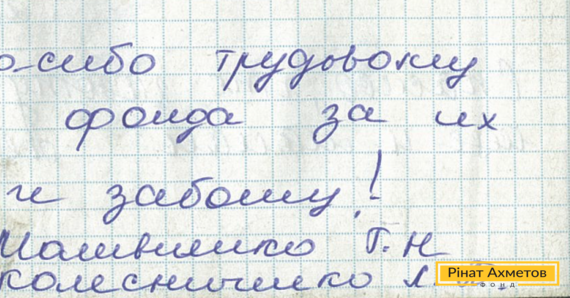 -сибо трудовому
фонда за их
и заботу!
Г. Н
Колесниченко Л.
Рінат Ахметов
Фонд